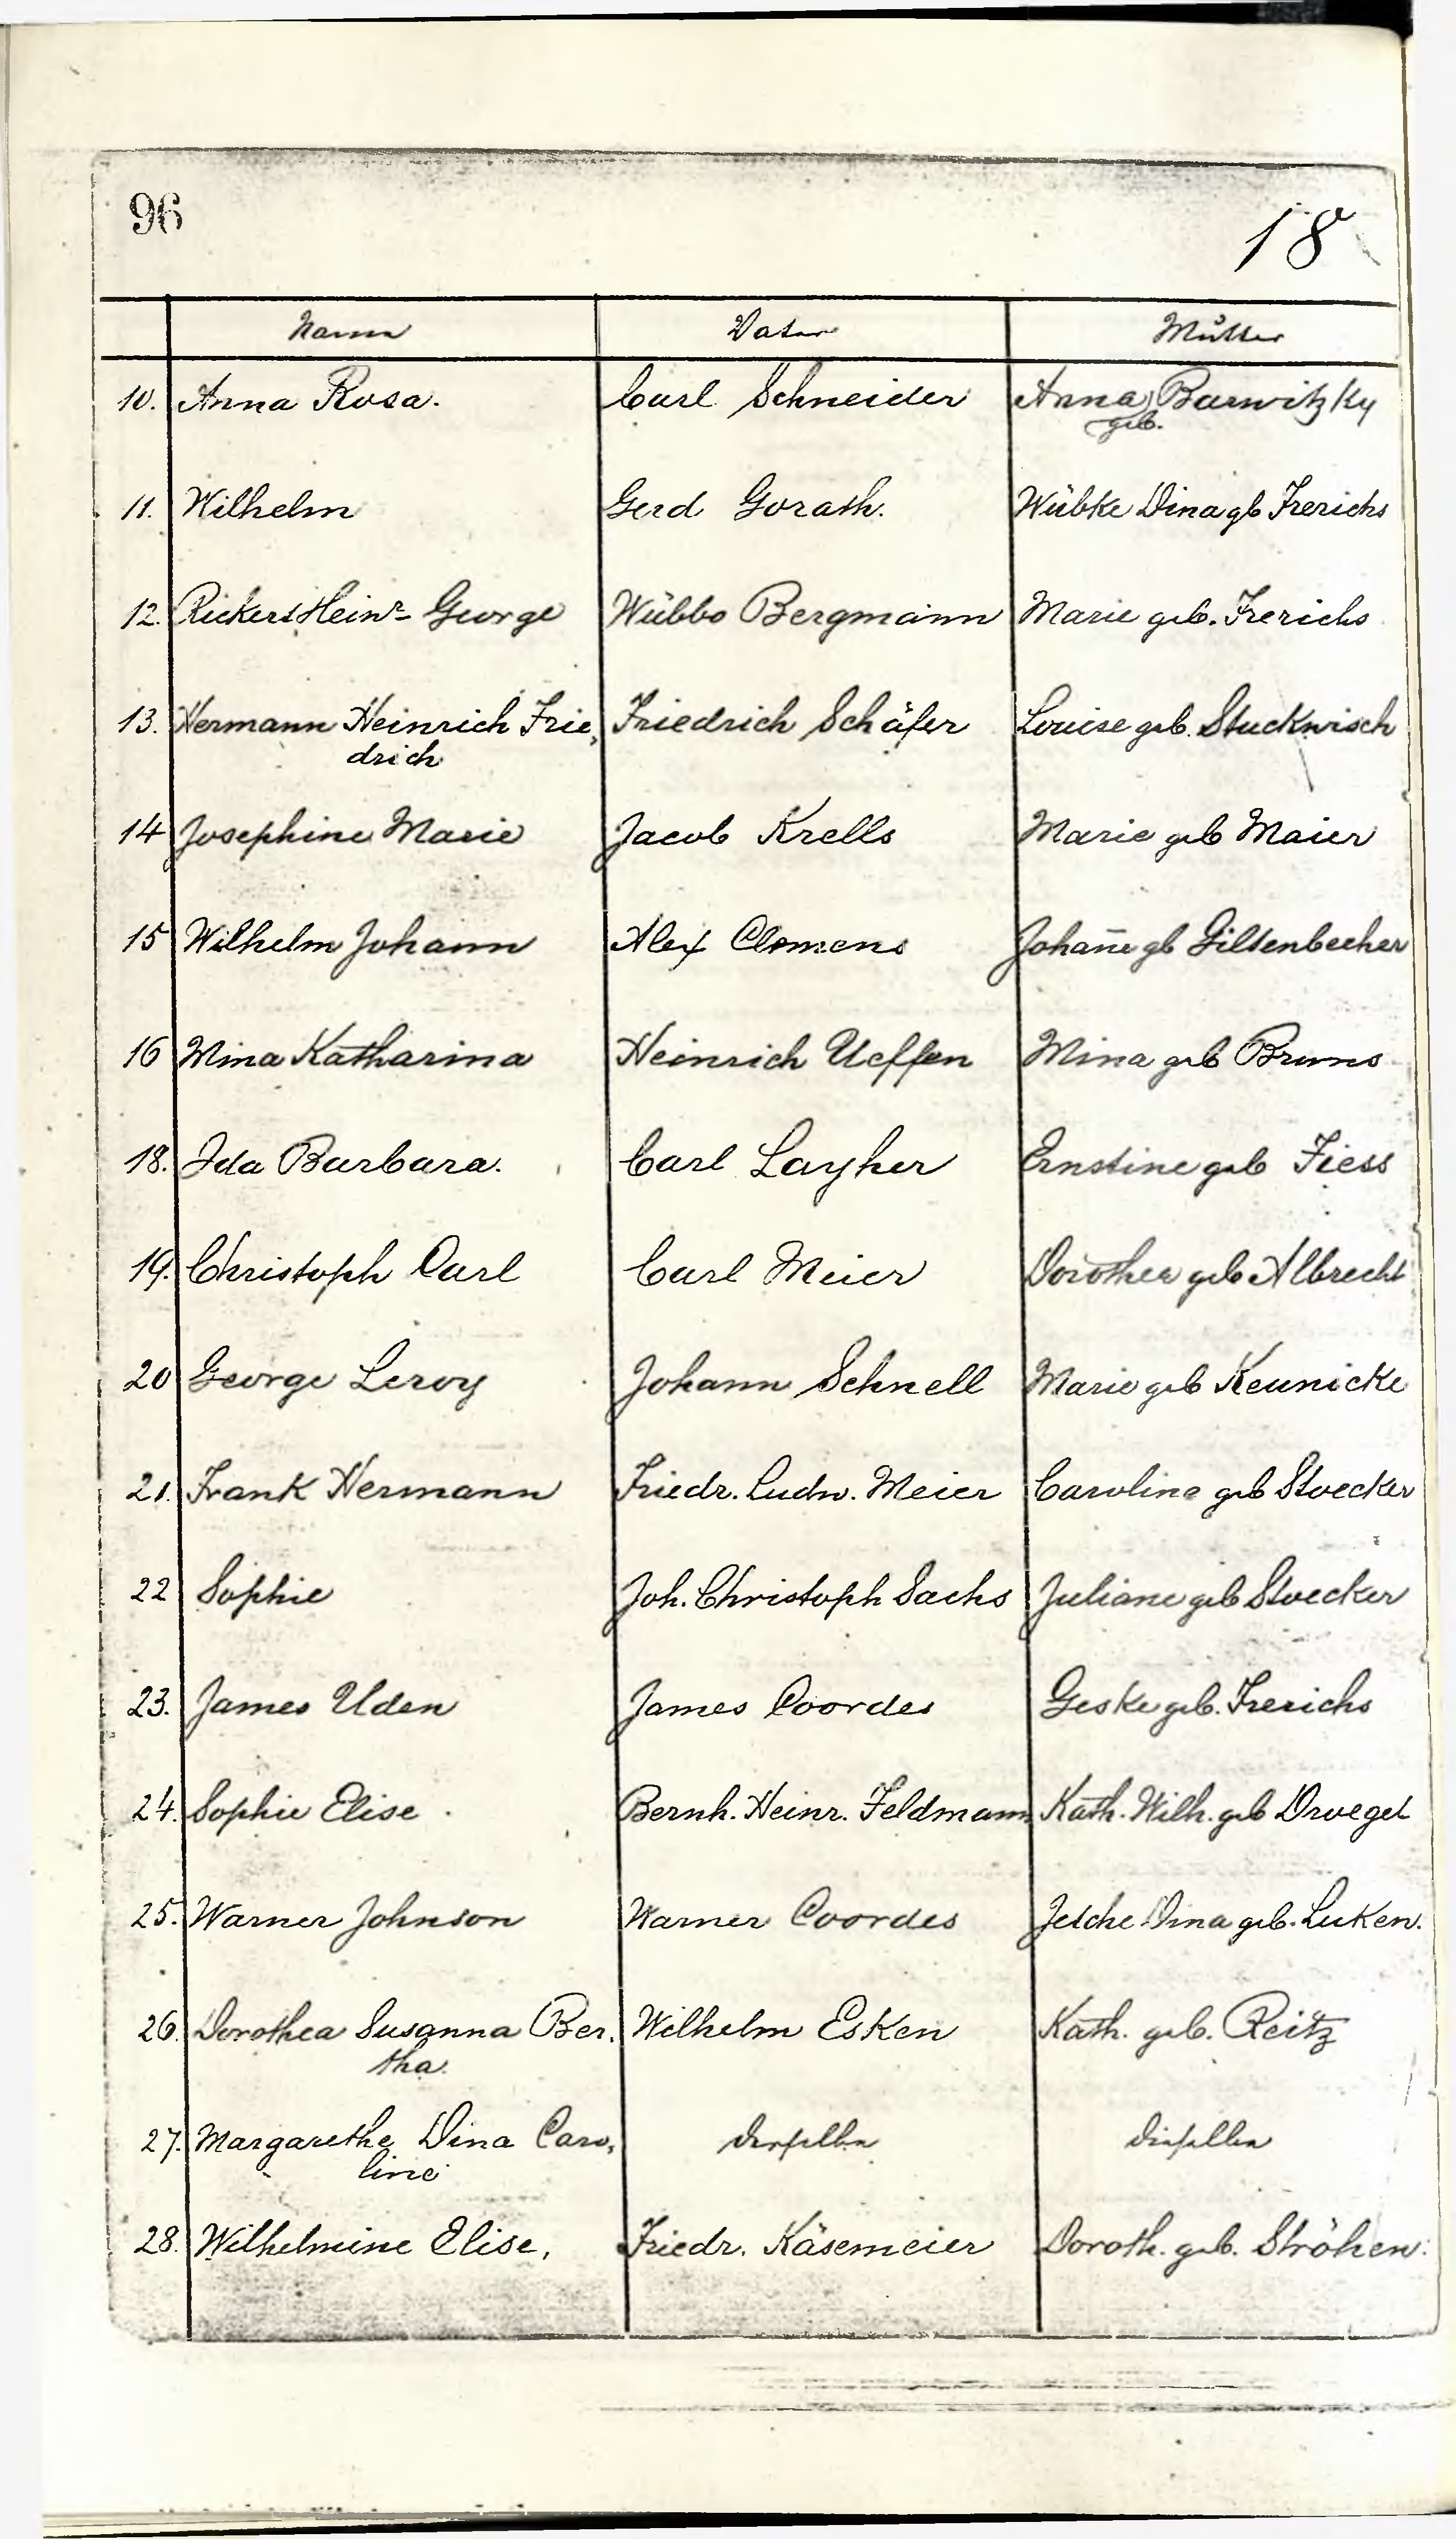 96
18
Name Vater Mutter
10. Anna Rosa. Carl Schneider Anna Barwitzky
geb.
11. Wilhelm Gerd Gorath. Wübke Dina gb Frerichs
12. Rickers Heinr- George Wübbo Bergmann Marie geb. Frerichs
13. Hermann Heinrich Frie, Friedrich Schäfer Louise geb. Stuckwisch
drich
14 Josephine Marie Jacob Krells Marie geb Maier
15 Wilhelm Johann Alex Clemens Johan̄e gb Giltenbecher
16 Mina Katharina Heinrich Ueffen Mina geb Bruns
18. Ida Barbara. Carl Layher Ernstine geb Fiess
19. Christoph Carl Carl Meier Dorothea geb Albrecht
20 George Leroy Johann Schnell Marie geb Keunicke
21. Frank Hermann Friedr. Ludw. Meier Caroline geb Stoecker
22 Sophie Joh. Christoph Sachs Juliane geb Stoecker
23. James Uden James Coordes Geske geb. Frerichs
24. Sophie Elise Bernh. Heinr. Feldmann Kath. Wilh. geb Droegel
25. Warner Johnson Warner Coordes Jetche Dina geb. Luken.
26. Dorothea Susanna Ber, Wilhelm Esken Kath. geb. Reitz
tha.
27. Margarethe Dina Caro, derselbe dieselbe
line
28. Wilhelmine Elise, Friedr. Käsemeier Doroth. geb. Ströhen.